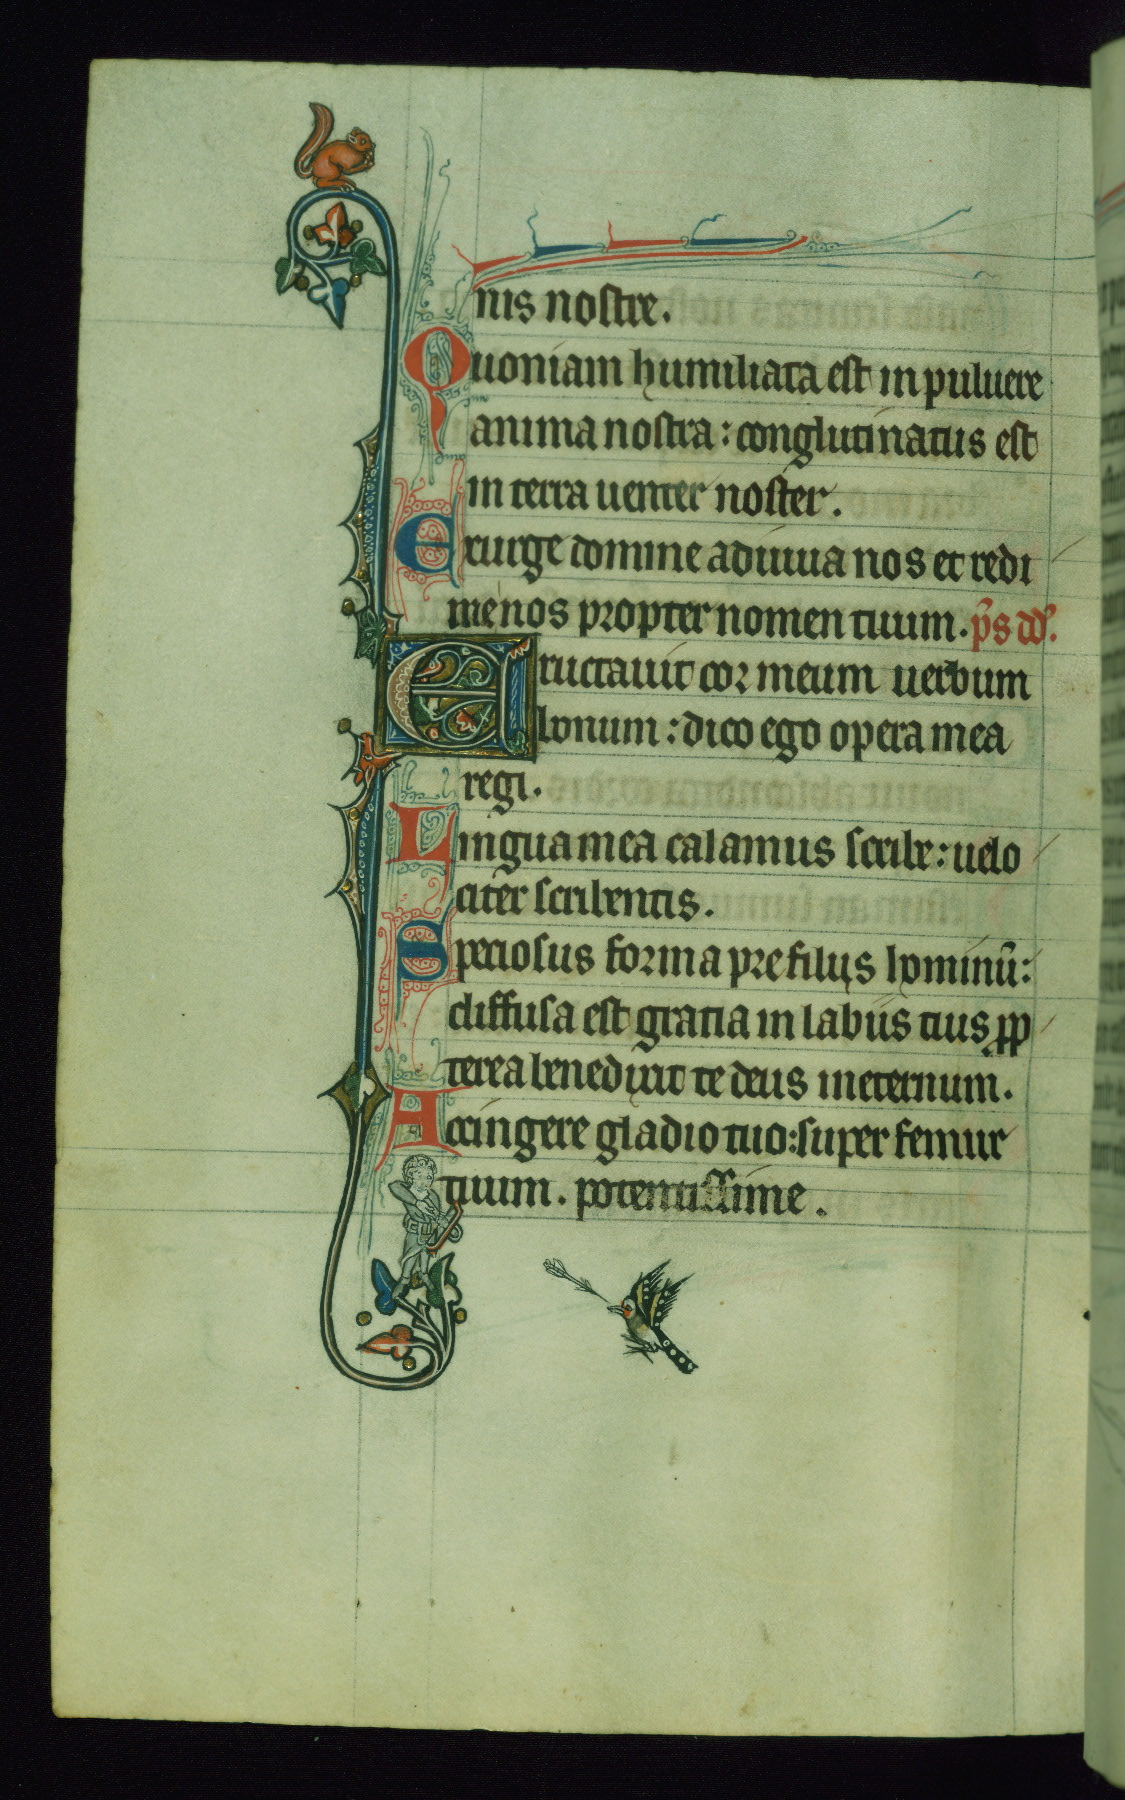 nis nostre.
Quoniam humiliata est in puluere
anima nostra: conglutinatus est
in terra uenter noster.
Exurge domine adiuua nos et redi
me nos propter nomen tuum. p̃s dd̃.
Eructauit cor meum uerbum
bonum: dico ego opera mea
regi.
Lingua mea calamus scribe: uelo
citer scribentis.
Speciosus forma pre filijs hominũ:
diffusa est gratia in labijs tuis ꝓp
terea benedixit te deus in eternum.
Accingere gladio tuo: super femur
tuum. potentissime.